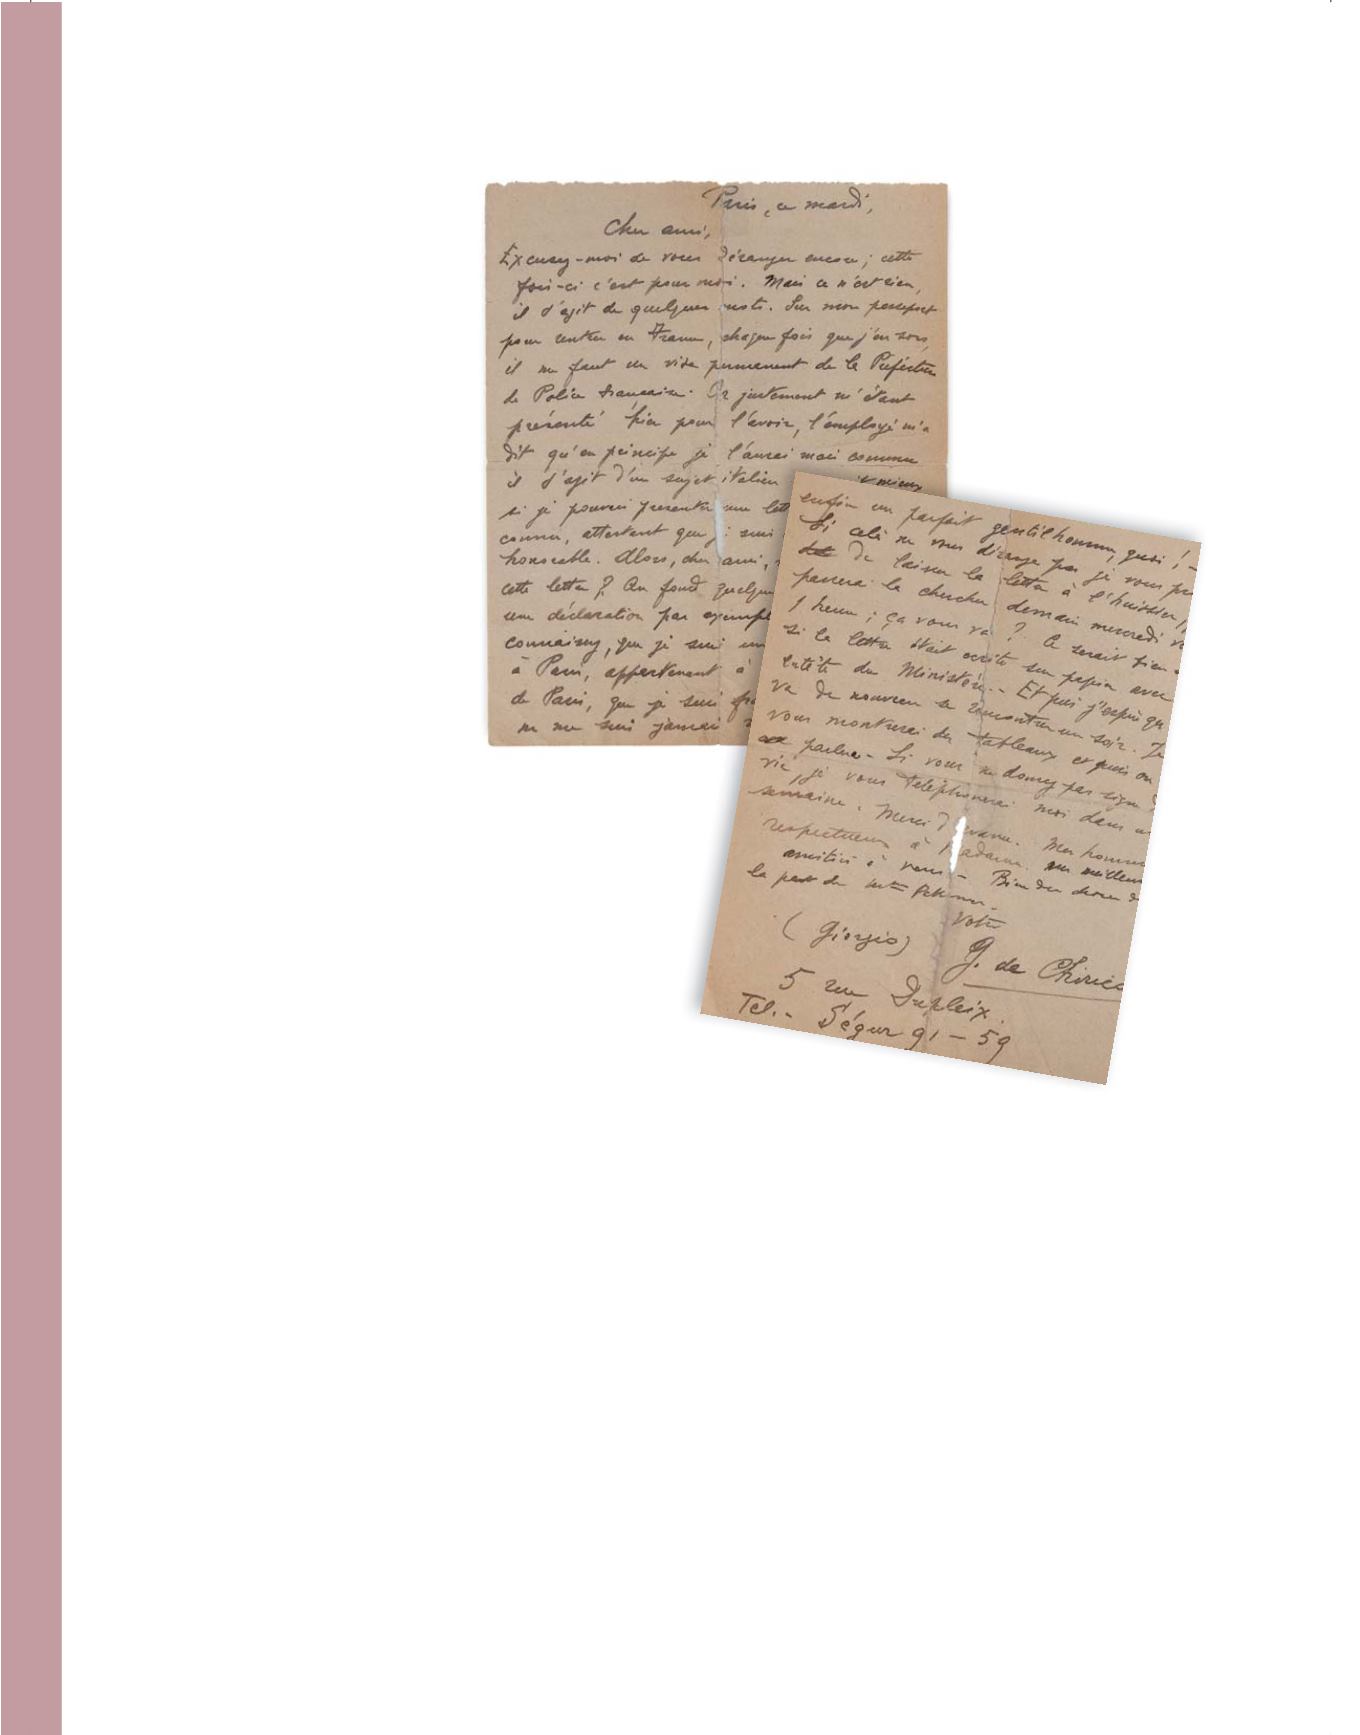 Paris, ce mardi,
Cher ami,
Excusez-moi de vous déranger encore; cette
fois-ci c'est pour moi. Mais ce n'est rien,
il s'agit de quelques mots. Sur mon passeport
pour rentrer en France, chaque fois que j'en sors,
il me faut un visa permanent de la Préfecture
de Police française. Or justement m'étant
présenté hier pour l'avoir, l'employé m'a
dit qu'en principe je l'aurai mais comme
il s'agit d'un sujet italien mieux
si je pouvais presenter une lett
connu, attestant que je suis
honorable. Alors, cher ami,
cette lettre? Au fond quelque
une déclaration par exemple
connaissez, que je suis un
à Paris, appartenant à
de Paris, que je suis
ne me suis jamais
enfin un parfait gentilhomme, quoi! -
Si celà ne vous dérange pas je vous pr
de laisser la lettre à l'huissier,
passerai la chercher demain mercredi v
1 heure; ça vous va? Ce serait bien
si la lettre était écrite sur papier avec
entête du Ministère. - Et puis j'espère qu
va de nouveau se rencontrer un soir. Je
vous montrerai des tableaux et puis on
parlera - Si vous ne donnez pas signe d
vie, je vous téléphonerai moi dans u
semaine. Merci d'avance. Mes homma
respectueux à Madame. mes meilleu
amitiés à vous - Bien des choses d
la part de
Votre
(Giorgio) G. de Chirico
5 rue Dupleix.
Tel. - Ségur 91 - 59